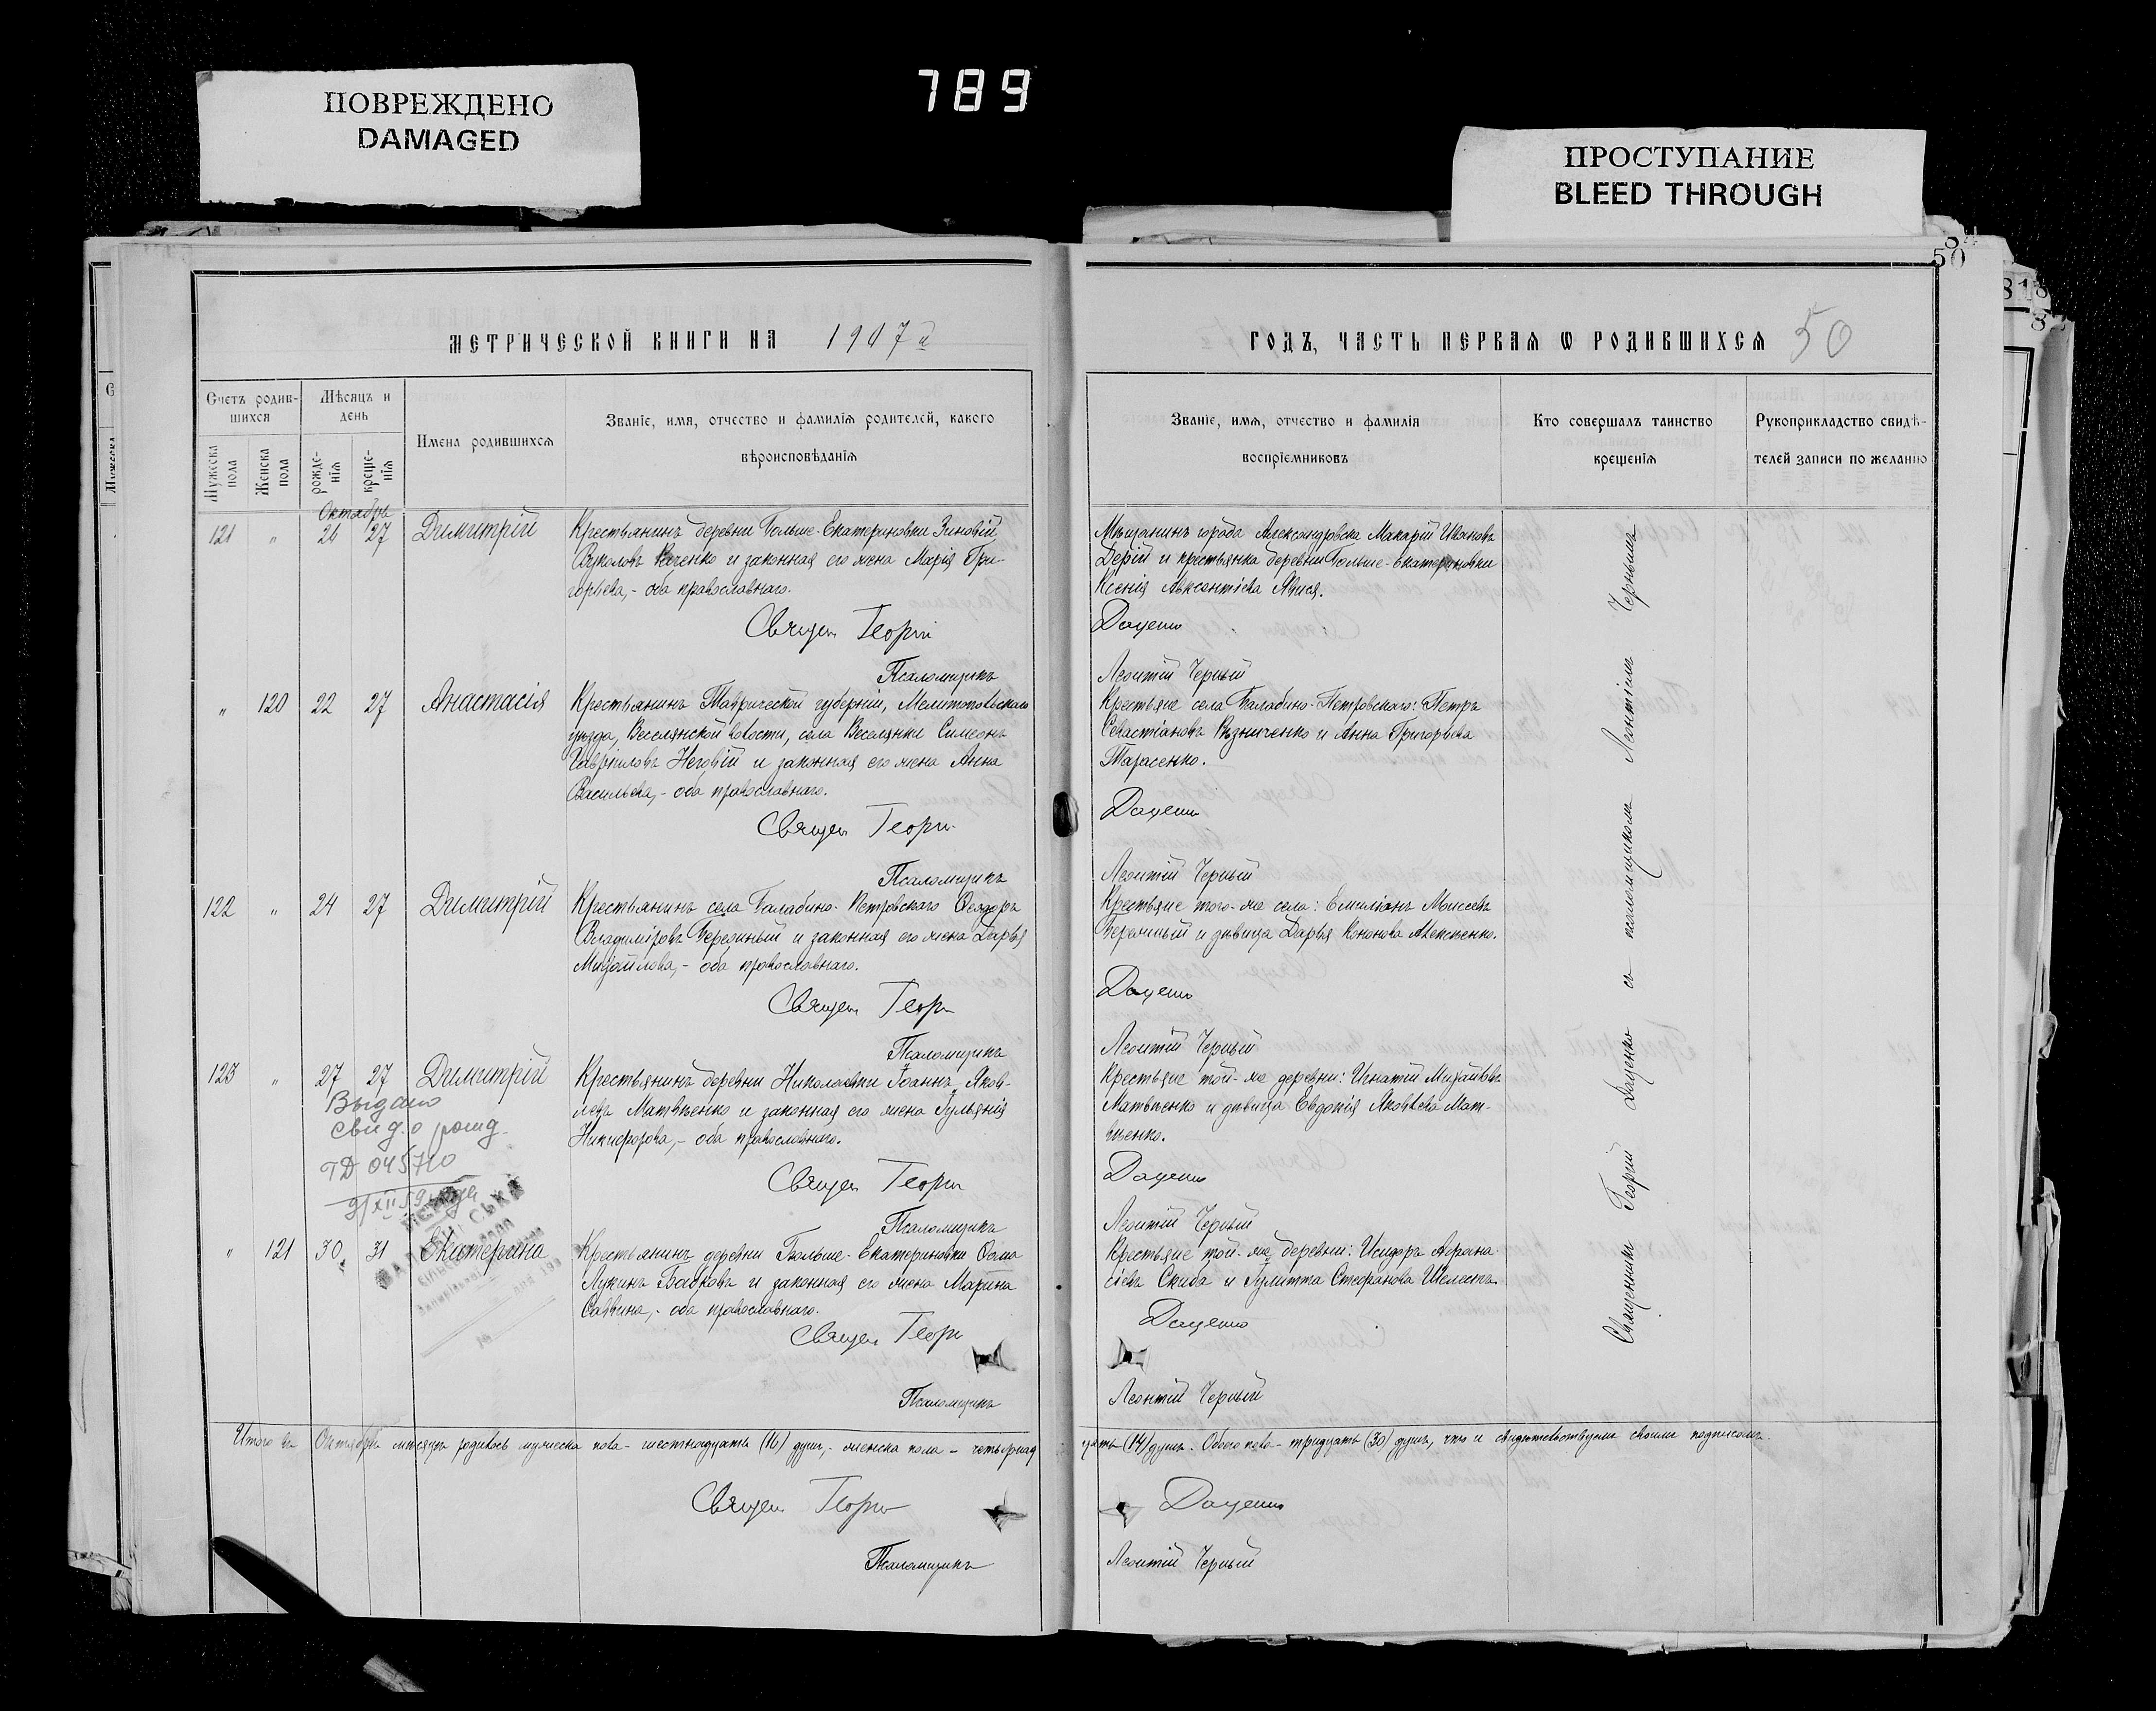 ПОВРЕЖДЕНО
DAMAGED
789
ПРОСТУПАНИЕ
BLEED THROUGH
50
МЕТРИЧЕСКОЙ КНИГИ НА 1907й
ГОДЪ, ЧАСТЬ ПЕРВАЯ Ѡ РОДИВШИХСЯ 50
Счетъ родив-
шихся
Мѣсяцъ и
день
Имена родившихся
Званіе, имя, отчество и фамилія родителей, какого
вѣроисповѣданія
Мужеска
пола
Женска
пола
рожде-
нія
креще-
нія
Званіе, имя, отчество и фамилія
воспріемниковъ
Кто совершалъ таинство
крещенія
Рукоприкладство свидѣ-
телей записи по желанію
Октябрь
121 " 24 27 Димитрій
Крестьянинъ деревни Больше-Екатериновки Зиновій
Вуколовъ и законная его жена Марія Гри-
горьева, - оба православнаго.
Священ Георгій
Псаломщикъ
Мѣщанинъ города Александровска Макарій Ивановъ
Дерій и крестьянка деревни Больше-Екатериновки
Ксенія Авксентіева
Даценко
Леонтій Черный
" 120 22 27 Анастасія
Крестьянинъ Таврической губерніи, Мелитопольскаго
уѣзда, Веселянской волости, села Веселянки Симеонъ
Гавріиловъ Неговій и законная его жена Анна
Васильева, - оба православнаго.
Священ Георгій
Псаломщикъ
Крестьяне села Балабино-Петровскаго: Петръ
Севастіановъ Рѣзниченко и Анна Григорьева
Тарасенко.
Даценко
Леонтій Черный
122 " 24 27 Димитрій
Крестьянинъ села Балабино-Петровскаго Ѳеодоръ
Владиміровъ и законная его жена Дарья
Михайлова, - оба православнаго.
Священ Георгій
Псаломщикъ
Крестьяне того-же села: Емиліанъ Моисеевъ
и дѣвица Дарья Кононова Алексѣенко.
Даценко
Леонтій Черный
123 " 27 27 Димитрій
Крестьянинъ деревни Николаевки Іоаннъ Яков-
левъ Матвѣенко и законная его жена Іульянія
Никифорова, - оба православнаго.
Священ Георгій
Псаломщикъ
Крестьяне той-же деревни: Игнатій Михайловъ
Матвѣенко и дѣвица Евдокія Яковлева Мат-
вѣенко.
Даценко
Леонтій Черный
Выдано
свид. о рожд.
ТД 045710
9/XII 59 года
" 121 30 31 Екатерина
Крестьянинъ деревни Больше-Екатериновки Ѳома
Лукинъ Бабковъ и законная его жена Марина
Саввина, - оба православнаго.
Священ Георгій
Псаломщикъ
Крестьяне той-же деревни: Исидоръ Аѳана-
сіевъ Скиба и Іулитта Стефанова Шелестъ.
Даценко
Леонтій Черный
Священникъ Георгій Даценко съ псаломщикомъ Леонтіемъ Чернымъ
Итого въ Октябрѣ мѣсяцѣ родилось мужеска пола - шестнадцать (16) душъ, - женска пола - четырнад
цать (14) душъ. Обоего пола - тридцать (30) душъ, что и свидѣтельствуемъ своими подписами.
Священ Георгій Даценко
Псаломщикъ Леонтій Черный